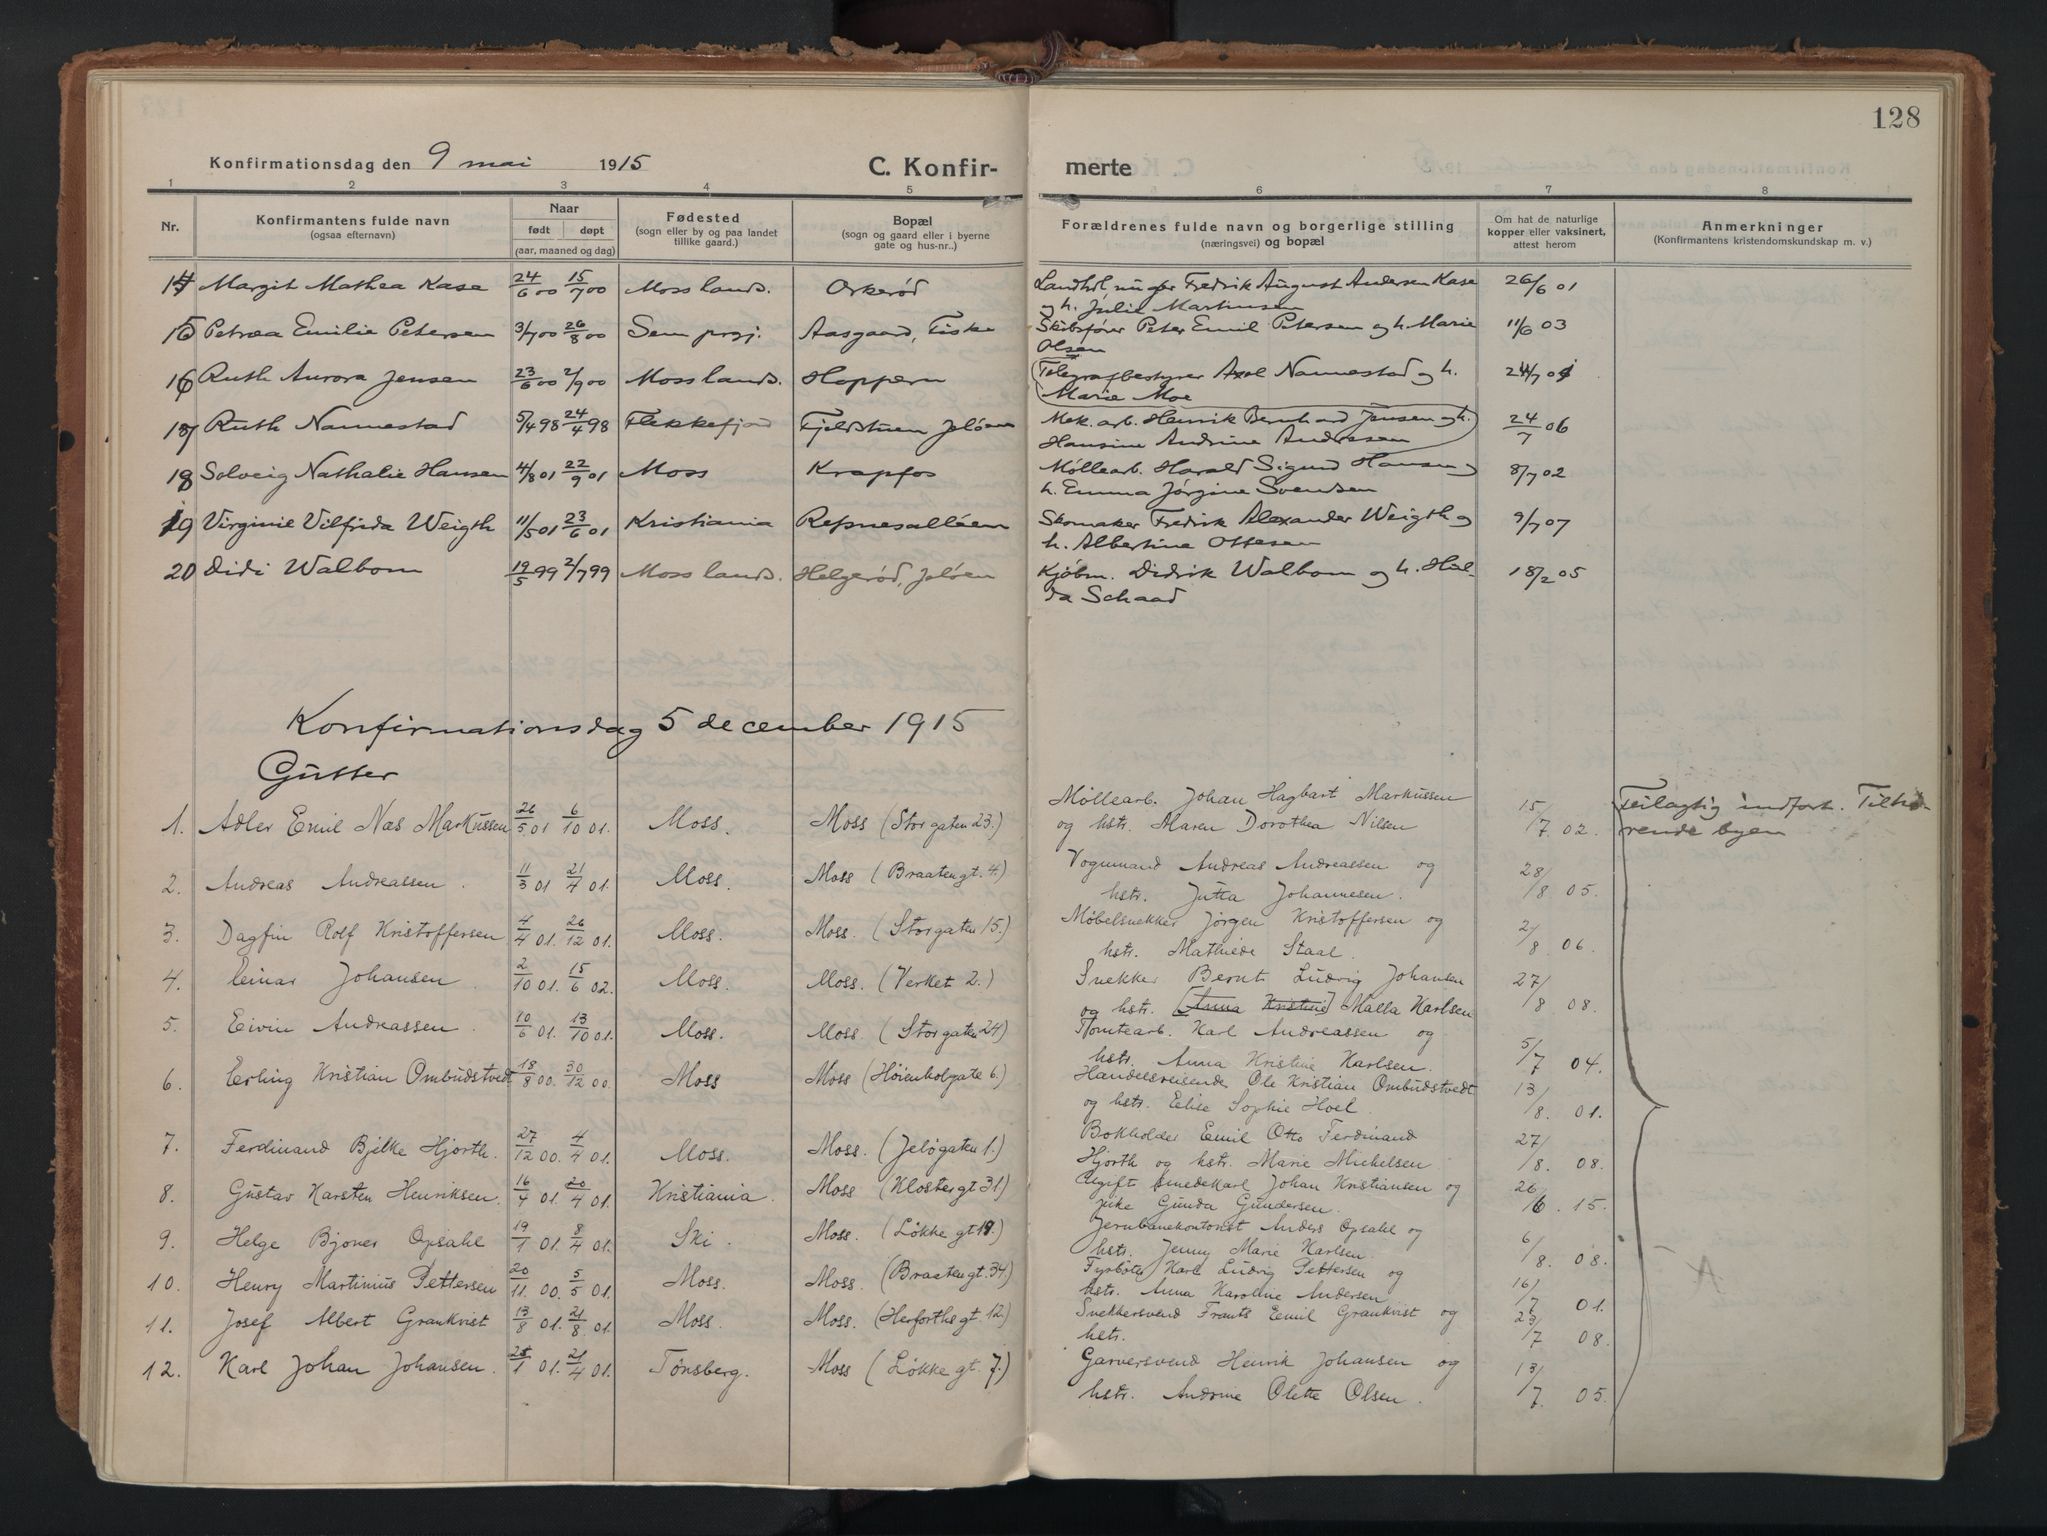 128
Konfirmationsdag den 9 mai 1915 C. Konfir- merte
1 2 3 4 5 6 7 8
Nr. Konfirmantens fulde navn (ogsaa efternavn) Naar født døpt (aar, maaned og dag) Fødested (sogn eller by og paa landet tillike gaard.) Bopæl (sogn og gaard eller i byerne gate og hus-nr..) Forældrenes fulde navn og borgerlige stilling (næringsvei) og bopæl Om hat de naturlige kopper eller vaksinert, attest herom Anmerkninger (Konfirmantens kristendomskundskap m. v.)
14 Margit Mathea Kasa 24/6 00 15/7 00 Moss lands. Orkerød Landhdl. Fredrik August Andersen Kasa 26/6 01
og h. Julie Martinsen
15 Petræa Emilie Petersen 3/7 00 26/8 00 Sem prgj. Aasgaard, Fiske Skibsfører Peter Emil Petersen og h. Marie 11/6 03
Olsen
16 Ruth Aurora Jensen 23/6 00 2/9 00 Moss lands. Hoppern Telegrafbestyrer Axel Nannestad og h. 24/7 01
Marie Moe
17 Ruth Nannestad 5/4 98 24/4 98 Flekkefjord Fjeldstuen Jeløen Mek. arb. Henrik Bernhard Jensen og h. 24/7 06
Hansine Andrine Andresen
18 Solveig Nathalie Hansen 4/8 01 22/9 01 Moss Krapfos Møllearb. Harald Sigurd Hansen og 8/7 02
h. Emma Jørgine Svendsen
19 Virginie Vilfrida Weigth 11/5 01 23/6 01 Kristiania Refsnesalléen Skomaker Fredrik Alexander Weigth og 9/7 07
h. Albertine Ottesen
20 Didi Walbom 19/5 99 2/7 99 Moss lands. Helgerød, Jeløen Kjøbm. Didrik Walbom og h. Hul- 18/2 05
da Schaad
Konfirmationsdag 5 december 1915
Gutter
1. Adler Emil Næs Markussen 26/5 01 6/10 01. Moss. Moss (Storgaten 23.) Møllearb. Johan Hagbart Markussen 15/7 02. Feilagtig indført. Tilhø-
og hstr. Maren Dorothea Nilsen rende byen
2. Andreas Andreassen. 11/3 01 21/4 01. Moss. Moss (Braatengt. 4.) Vognmand Andreas Andreassen og 28/8 05.
hstr. Jutta Johannesen.
3. Dagfin Rolf Kristoffersen 4/4 01. 26/12 01. Moss. Moss. (Storgaten 15.) Møbelsnekker Jørgen Kristoffersen og 2/8 06.
hstr. Mathilde Staal.
4. Einar Johansen 2/10 01. 15/6 02. Moss. Moss. (Verket 2.) Snekker Bernt Ludvig Johansen 27/8 08.
og hstr. [Anna Kristine] Malla Karlsen
5. Eivin Andreassen 10/6 01. 13/10 01. Moss. Moss (Storgaten 24) Tomtearb. Karl Andreassen og 5/7 04.
hstr. Anna Kristine Karlsen.
6. Erling Kristian Ombudstvedt 18/8 00. 30/12 00. Moss Moss (Høienholgate 6.) Handelsreisende Ole Kristian Ombudstvedt 13/8. 01.
og hstr. Elise Sophie Hoel.
7. Ferdinand Bjelke Hjorth. 27/12 00. 4/4 01. Moss. Moss. (Jeløgaten 1.) Bokholder Emil Otto Ferdinand 27/8. 08.
Hjorth og hstr. Marie Michelsen
8. Gustav Karsten Henriksen. 16/4 01. 20/4 01. Kristiania. Moss (Klostergt 31) Ugift Smedekarl Johan Kristiansen og 26/6. 15.
pike Gunda Gundersen.
9. Helge Bjoner Opsahl 19/1 01. 8/4 01. Ski. Moss. (Løkke gt 19.) Jernbanekontorist Anders Opsahl og 6/8. 08.
hstr. Jenny Marie Karlsen.
10. Henry Martinius Pettersen 20/11. 00. 5/5 01. Moss. Moss. (Braatengt. 34) Fyrbøter Karl Ludvig Pettersen og 16/7 01.
hstr. Anna Karoline Andersen
11. Josef Albert Grankvist 13/8 01. 21/8. 01. Moss. Moss. (Herforthsgt. 12.) Snekkersvend Frants Emil Grankvist og 23/7 08.
hstr.
12. Karl Johan Johansen. 25/1 01. 21/4 01. Tønsberg. Moss (Løkke gt. 7.) Garversvend Henrik Johansen og 13/7. 05.
hstr. Andrine Olette Olsen.